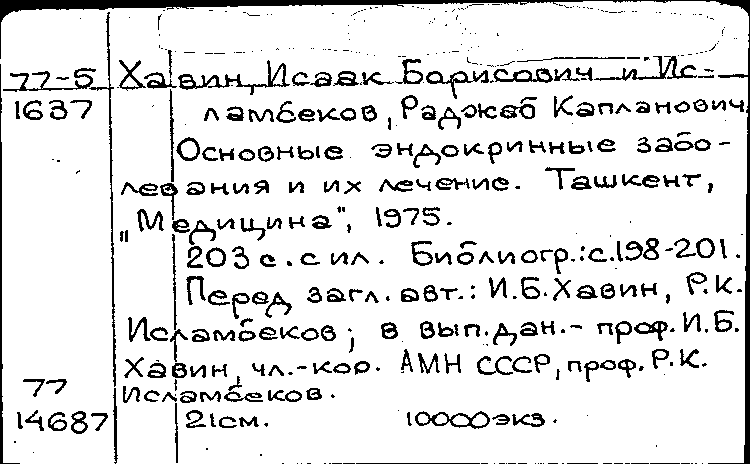 77-5 Хавин, Исаак Борисович и Ис-
1637 ламбеков, Раджаб Капланович.
Основные эндокринные забо-
левания и их лечение. Ташкент,
„Медицина", 1975.
203 с. с ил. Библиогр.: с.198-201.
Перед загл. авт.: И.Б.Хавин, Р.К.
Исламбеков; в вып.дан.- проф. И.Б.
Хавин, чл.-кор. АМН СССР, проф. Р.К.
77 Исламбеков.
14687 21см. 10000экз.